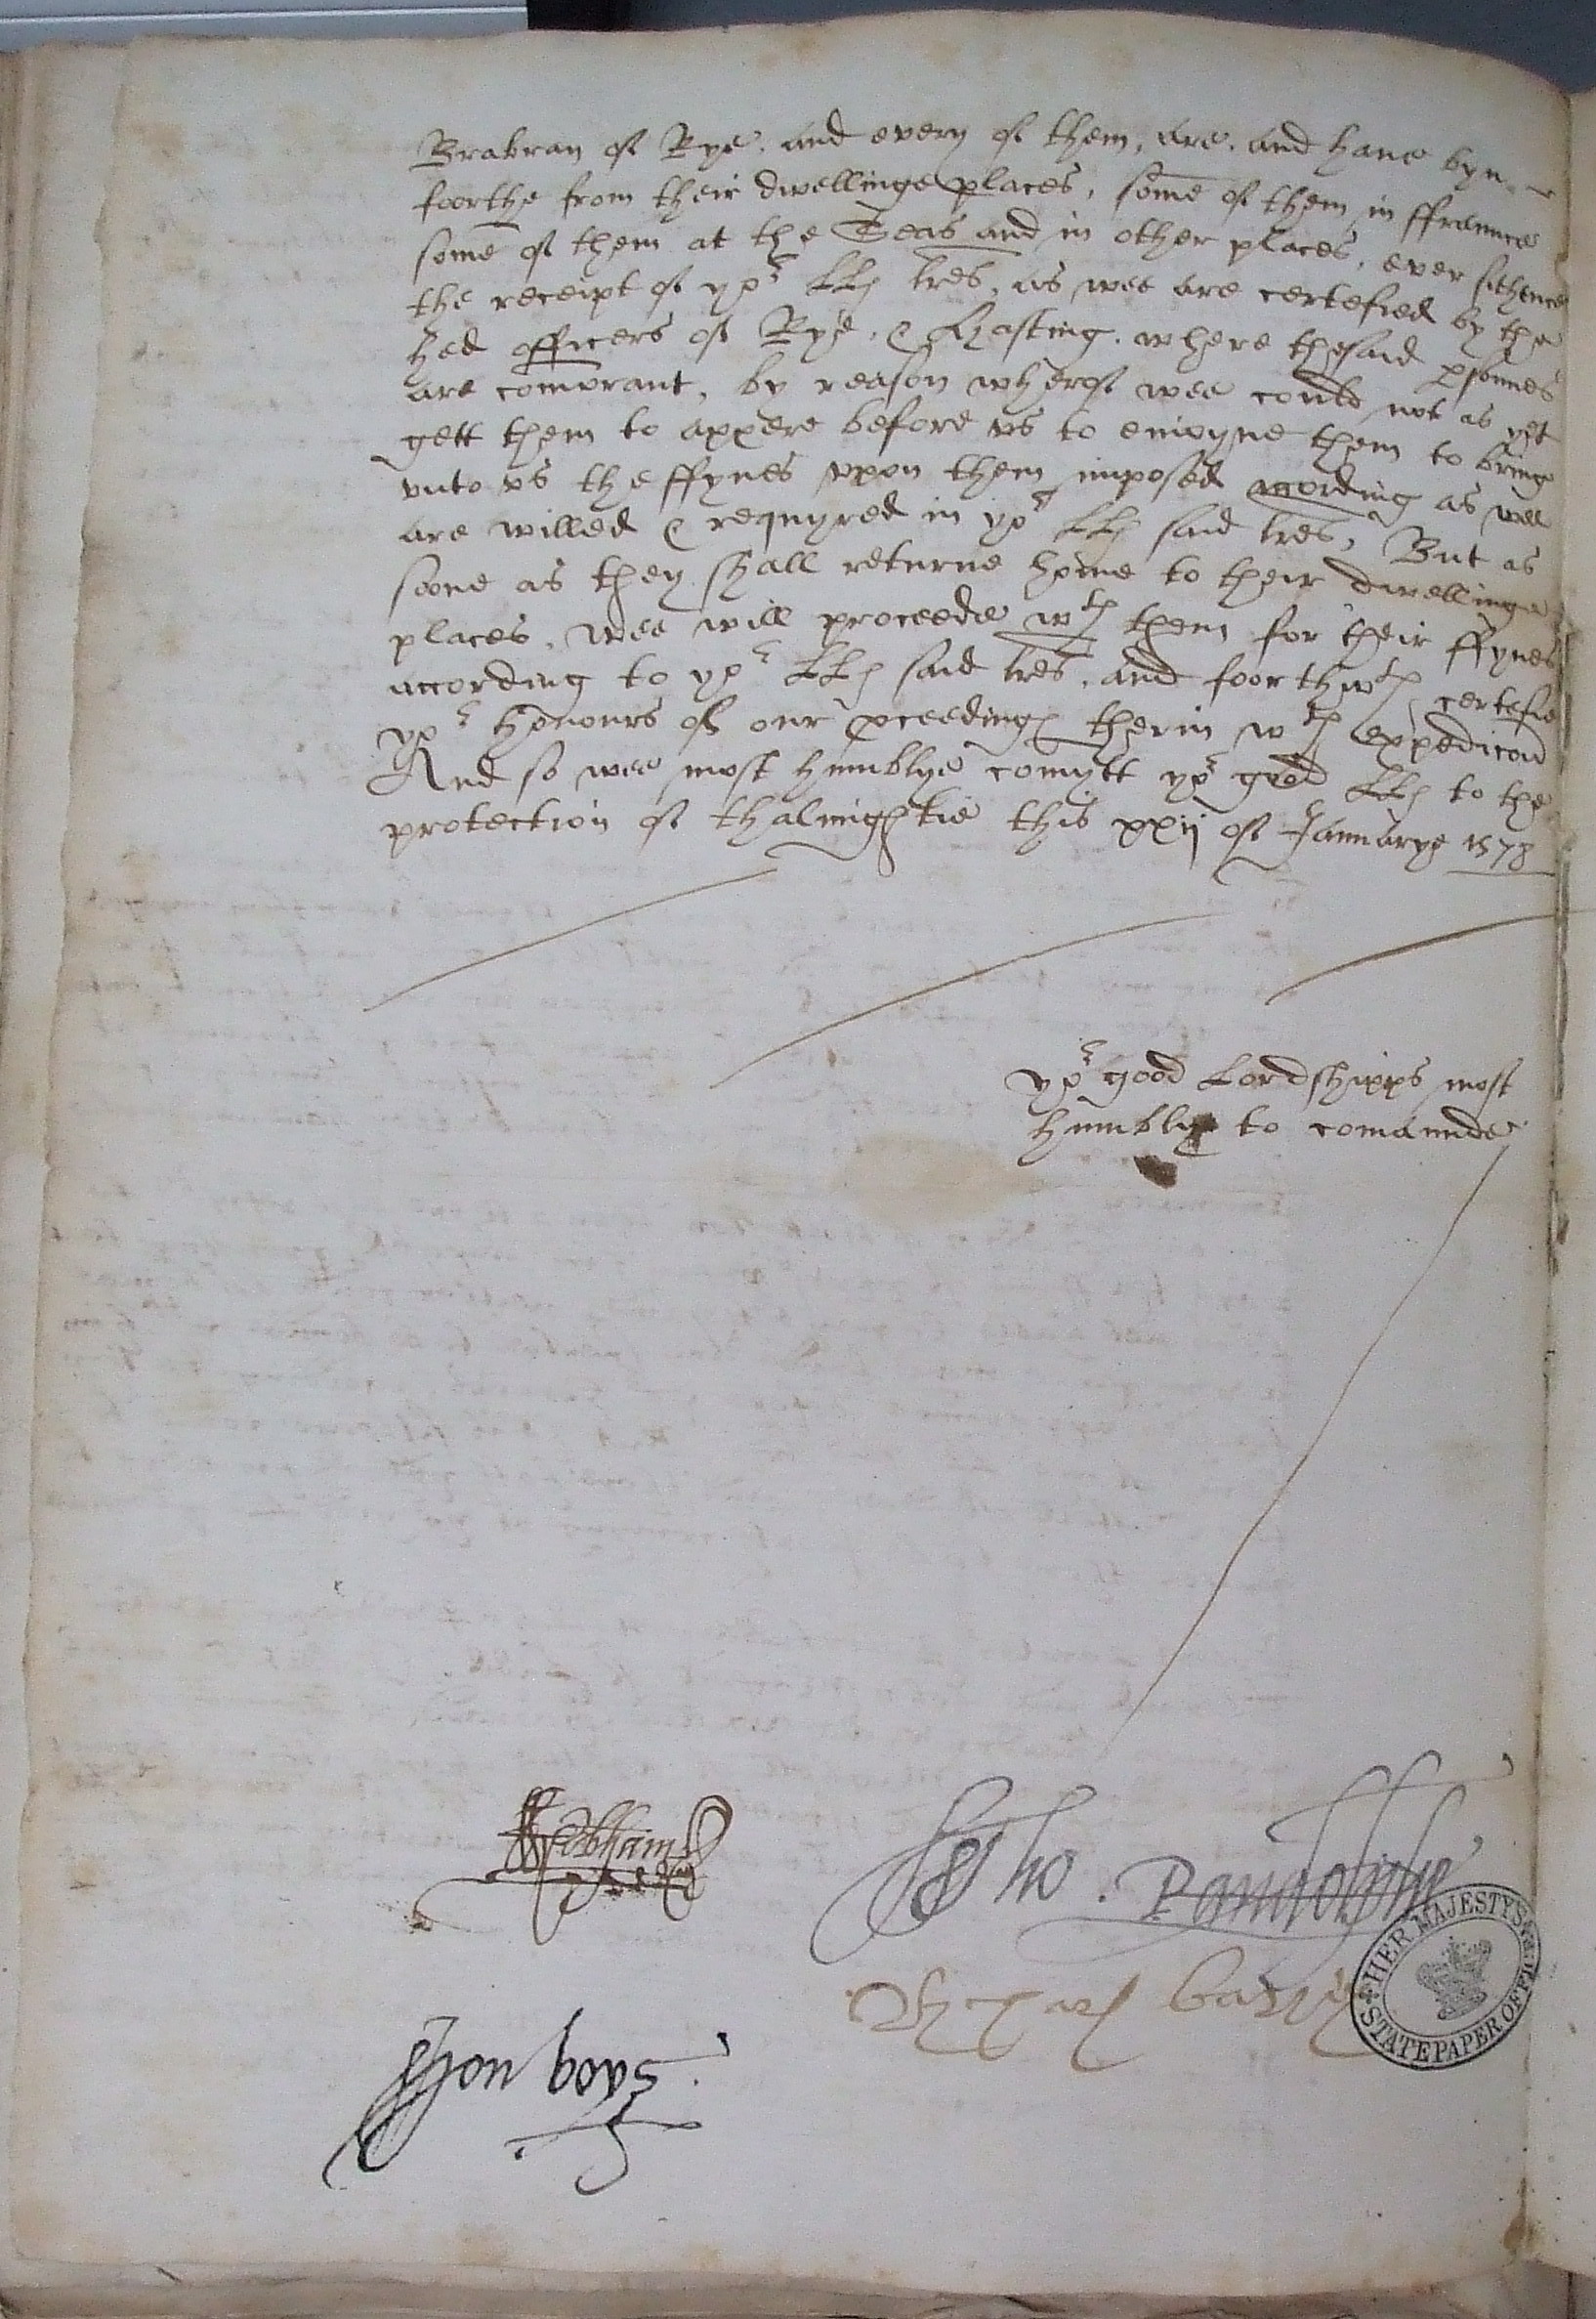 Brabran of Rye. and every of them, are. and have byn
foorthe from their dwellinge places, some of them in ffraunce
some of them at the Seas and in other places, ever sithence
the receipt of yor LLs lres, as wee are certefied by the
hed officers of Rye, & Hasting. where thesaid psonnes
are comorant, by reason wherof wee could not as yet
gett them to appere before vs to enioyne them to bringe
vnto vs the ffynes vpon them imposed acording as wee
are willed & requyred in yor LLs said lres, But as
soone as they shall returne home to their dwellinge
places, wee will proceede wth them for their ffynes
according to yor LLs said lres, and foorthwth certefie
yor honours of our pceedings therin wth expedicon
And so wee most humblye comytt yor good LLs to the
protection of thalmightie this xxij of Januarye 1578
yor good Lordshipps most
humblye to comaunde
W Cobham
Tho. Randolphe
Jhon boys
HER MAJESTY'S STATE PAPER OFFICE